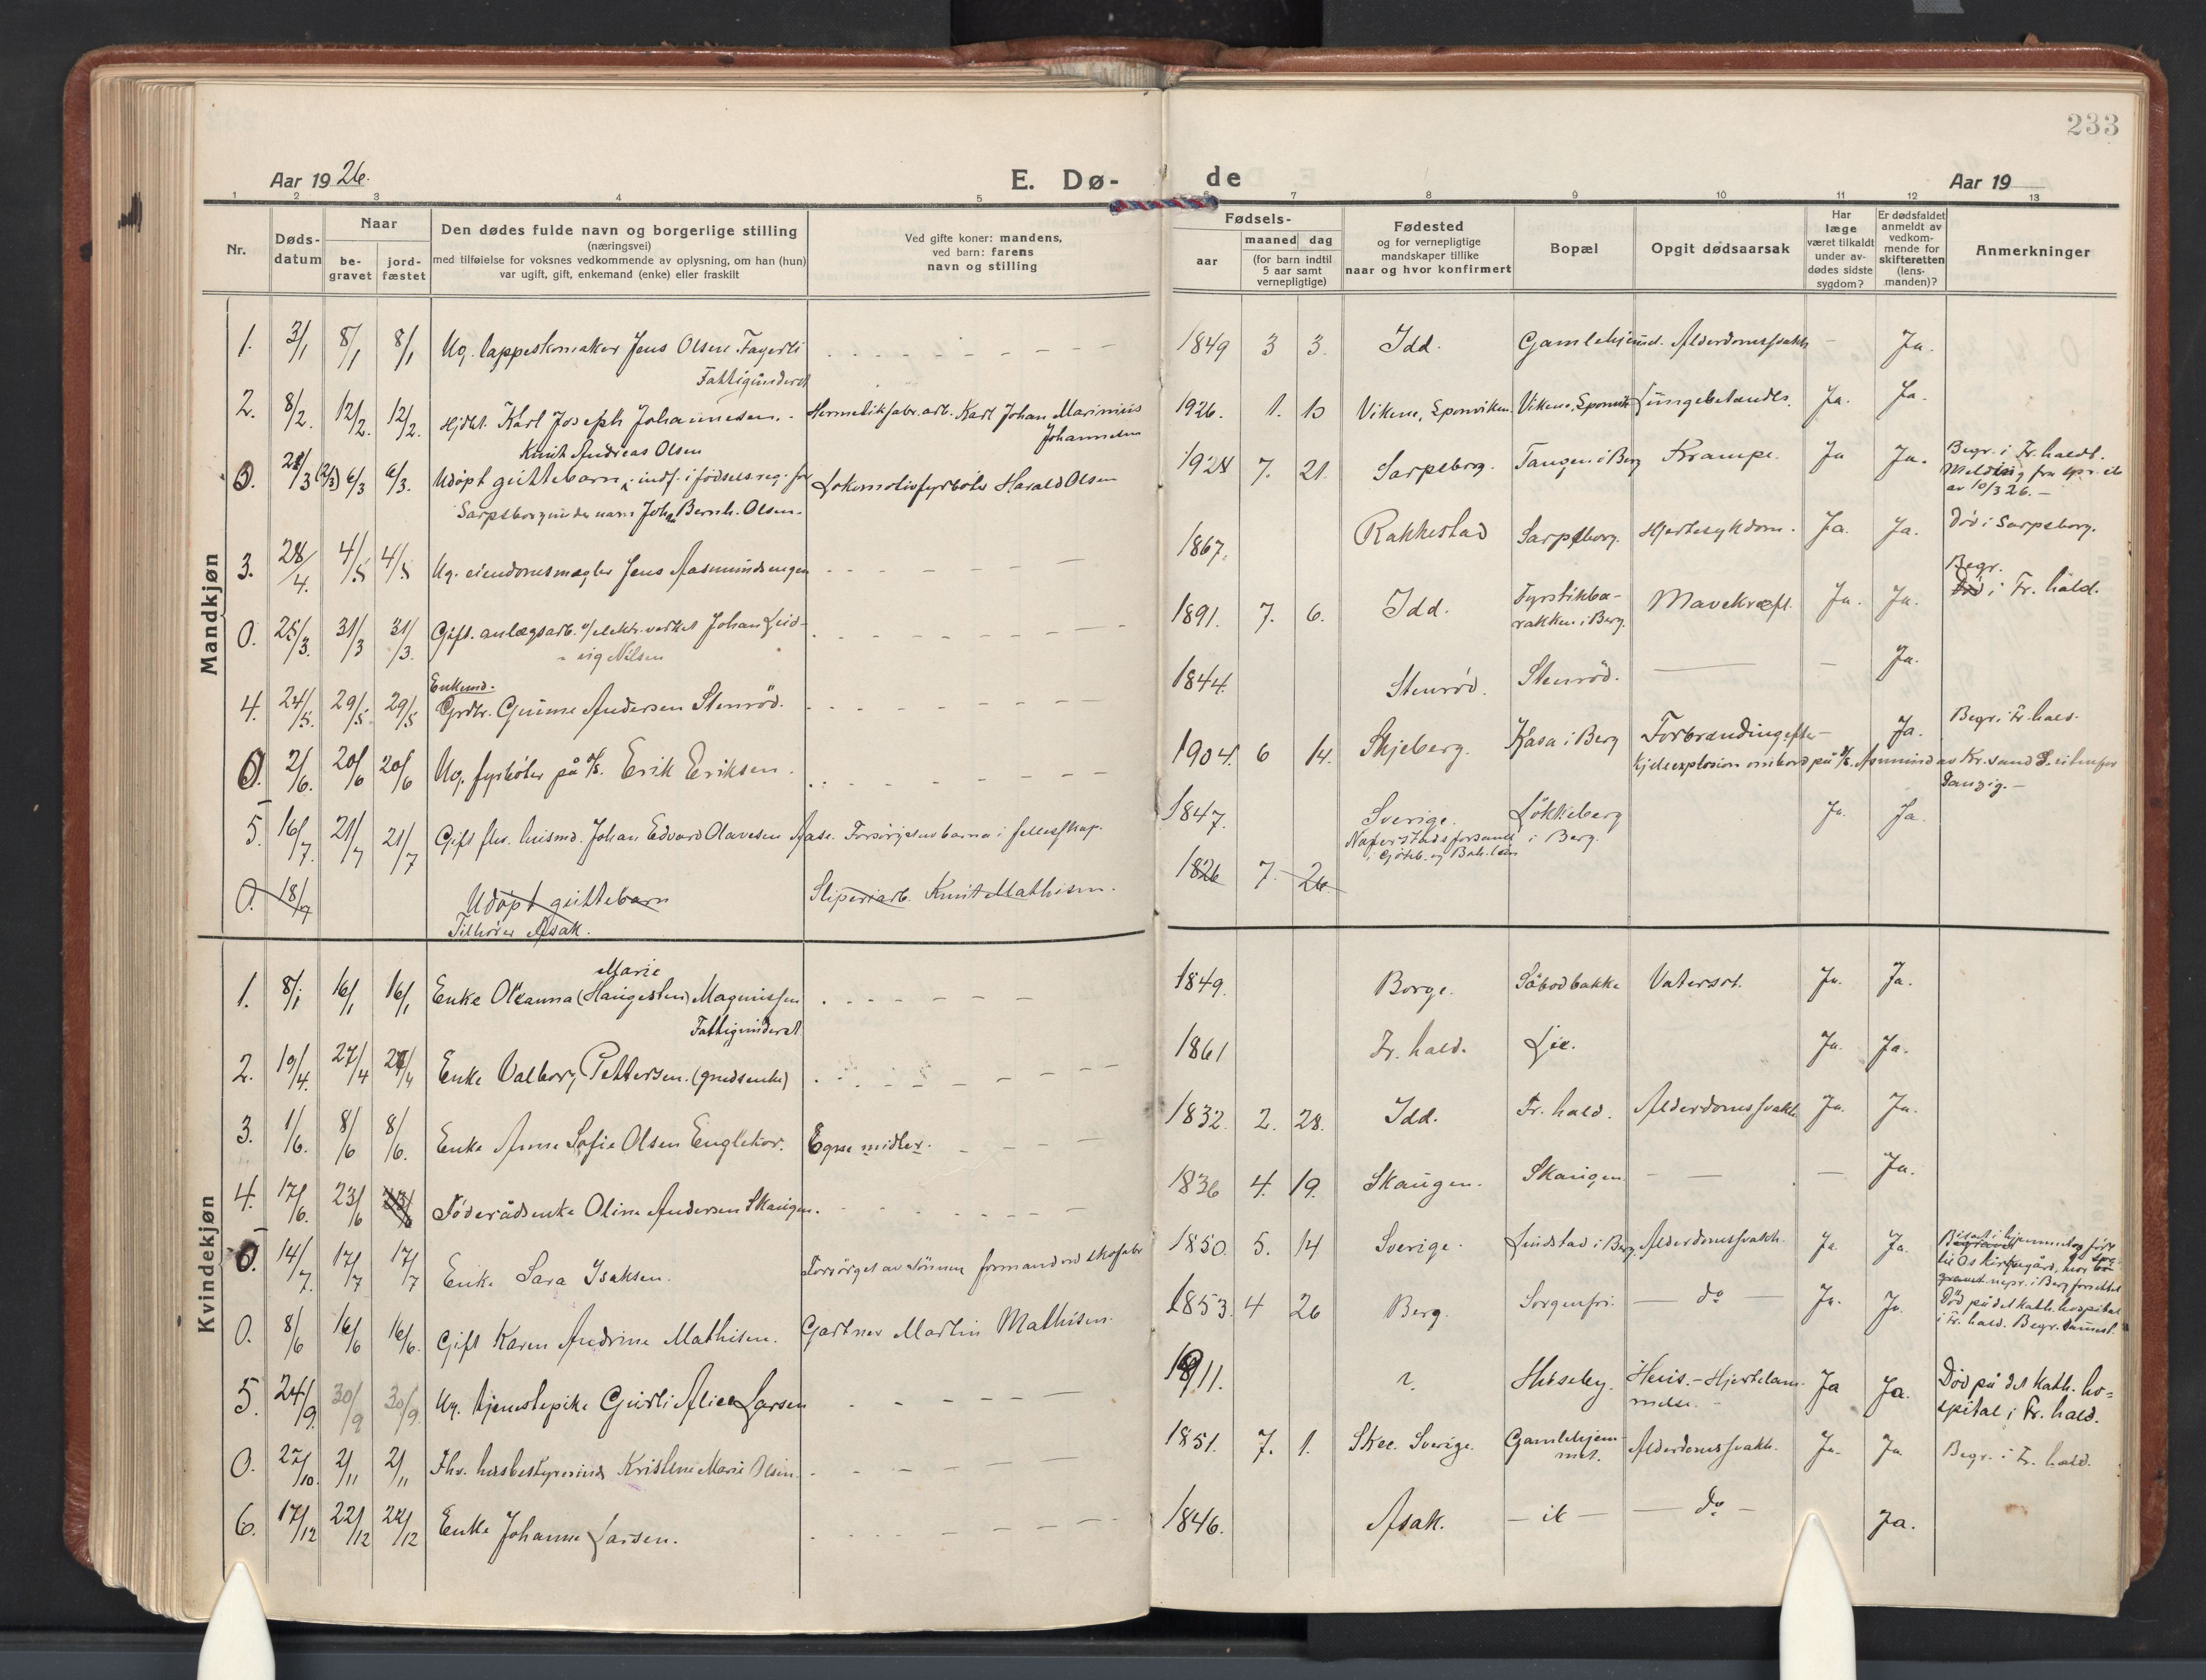 233
Aar 1926.
E. Dø-
de
Aar 19
1 2 3 4 5 6 7 8 9 10 11 12 13
Nr.
Døds-
datum
Naar
be-
gravet
jord-
fæstet
Den dødes fulde navn og borgerlige stilling
(næringsvei)
med tilføielse for voksnes vedkommende av oplysning, om han (hun)
var ugift, gift, enkemand (enke) eller fraskilt
Ved gifte koner: mandens,
ved barn: farens
navn og stilling
Fødsels-
aar
maaned dag
(for barn indtil
5 aar samt
vernepligtige)
Fødested
og for vernepligtige
mandskaper tillike
naar og hvor konfirmert
Bopæl
Opgit dødsaarsak
Har
læge
været tilkaldt
under av-
dødes sidste
sygdom?
Er dødsfaldet
anmeldt av
vedkom-
mende for
skifteretten
(lens-
manden)?
Anmerkninger
Mandkjøn
1. 3/1 8/1 8/1 Ug. lappeskomaker Jens Olsen Fagerli 1849 3 3. Idd. Gamlehjemmet. Alderdomssvakh. – Ja.
Fattigunderst
2. 8/2. 12/2. 12/2. Hjdøt. Karl Joseph Johannesen. Hermetikfabr.arb. Karl Johan Marinius 1926. 1. 10 Vikene, Sponviken. Vikene, Sponvik Lungebetændes. Ja. Ja.
Johannesen
Knut Andreas Olsen
0. /3 (2/3) 6/3 6/3. Udøpt guttebarn, indf. i fødselsreg. for Lokomotivfyrbøter Harald Olsen 7. 21. Sarpsborg. Tangen i Berg Krampe. Ja Ja. Begr. i Fr.hald.
Sarpsborg under navn Johan Bernh. Olsen. Melding fra spr. ib
av 10/3 26. –
3. 28/4. 4/5 4/5 Ug. eiendomsmægler Jens Aasmundsengen 1867. Rakkestad Sarpsborg. Hjertesykdom. Ja. Ja. Død i Sarpsborg.
0. 25/3. 31/3 31/3. Gift. anlægsarb. v/ elektr.verket Johan Lud- 1891. 7. 6. Idd. Fyrstikba- Mavekræft. Ja. Ja. Begr.
vig Nilsen rakken i Berg. Død i Fr. hald.
Enkemd.
4. 24/5. 29/5 29/5 Grdbr. Gunne Andersen Stenrød. 1844. Stenrød. Stenrød. – Ja.
0. 2/6. 20/6 20/6 Ug. fyrbøter på S/S. Erik Eriksen. 1904. 6 14. Skjeberg. Kasa i Berg Forbrænding efter Ja. Begr. i Fr. hald.
kjeleexplosion ombord på S/S. Asmund av Kr.sand S. utenfor
Danzig. –
5. 16/7. 21/7 21/7 Gift fhv. husmd. Johan Edvard Olavesen Aase. Forsørges av barna i fellesskap. 1847. Sverige. Løkkeberg Ja. Ja.
i Berg.
i Gøteb. og Boh. län
0. 18/7 Udøpt guttebarn Sliperiarb. Knut Mathisen. 1826 7. 26.
Tilhører Asak.
Kvindekjøn
1. 8/1 16/1 16/1 Enke Oleanna (Haugesten) Marie Magnussen 1849. Borge. Søbodbakke Vatersot. Ja. Ja.
Fattigunderst
2. 19/4. 27/4 27/4 Enke Valborg Pettersen. (grdsenke) 1861 Fr. hald. Lie. Ja. Ja.
3. 1/6. 8/6 8/6. Enke Anne Sofie Olsen Englekor. Egne midler. 1832. 2. 28. Idd. Fr. hald. Alderdomssvakh. Ja. Ja.
4. 17/6. 23/6 23/6 Føderådsenke Oline Andersen Skaugen. 1836 4. 19. Skaugen. Skaugen. – Ja.
0. 14/7. 17/7 17/7 Enke Sara Isaksen. Forsørget av sønnen formand ved skofabr 1850. 5. 14 Sverige. Lundstad i Berg. Alderdomssvakh. Ja Ja. Bisat i hjemmet og ført
til Os kirkegård, hvor
0. 8/6 16/6 16/6. Gift Karen Andrine Mathisen. Gartner Martin Mathisen. 1853. 4 26 Berg. Sorgenfri. – do – Ja. Ja. Død på det kath. hospital
i Fr. hald. Begr. sammest.
5. 24/9. 30/9 30/9. Ug. tjenestepike Gurli Alice Larsen 1911. ? Huseby. Hjertelam- Ja Ja. Død på det kath. ho=
melse. – spital i Fr. hald.
0. 27/10. 2/11 2/11 Fhv. husbestyrerinde Kristine Marie Olsen. 1851. 7. 1. Skee. Sverige. Gamlehjem- Alderdomssvakh. Ja. Ja. Begr. i Fr. hald.
met.
6. 17/12 22/12 22/12 Enke Johanne Larsen. 1846. Asak. – ib – – do – Ja.